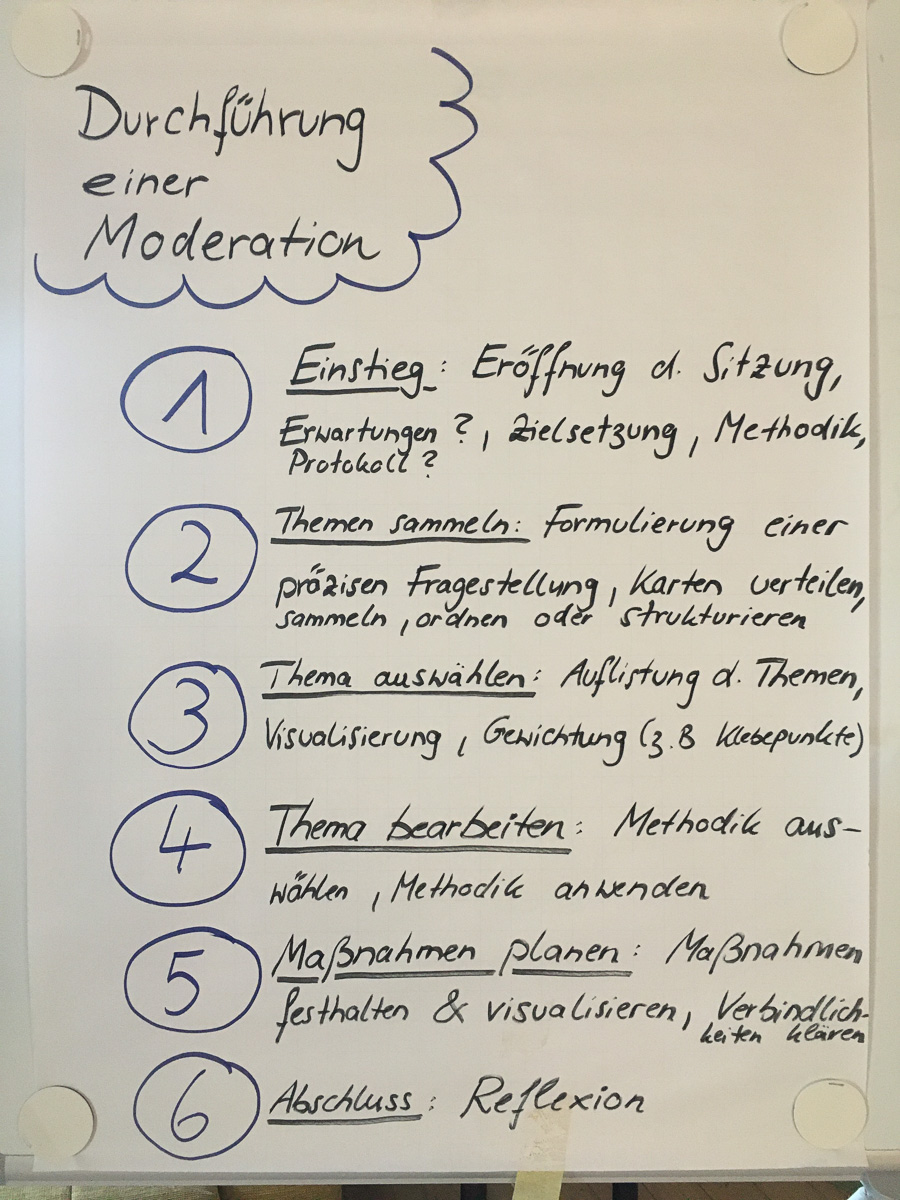 Durchführung
einer
Moderation
1 Einstieg: Eröffnung d. Sitzung,
Erwartungen?, Zielsetzung, Methodik,
Protokoll?
2 Themen sammeln: Formulierung einer
präzisen Fragestellung, Karten verteilen,
sammeln, ordnen oder strukturieren
3 Thema auswählen: Auflistung d. Themen,
Visualisierung, Gewichtung (z.B Klebepunkte)
4 Thema bearbeiten: Methodik aus-
wählen, Methodik anwenden
5 Maßnahmen planen: Maßnahmen
festhalten & visualisieren, Verbindlich-
keiten klären
6 Abschluss: Reflexion